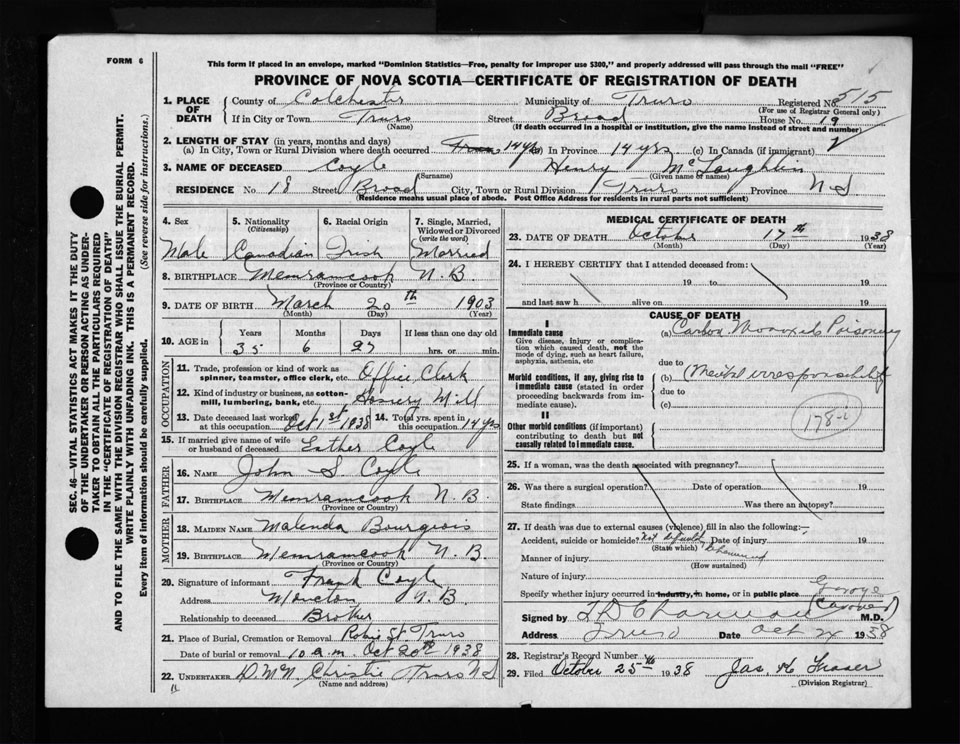 FORM 6
This form if placed in an envelope, marked "Dominion Statistics—Free, penalty for improper use $300," and properly addressed will pass through the mail "FREE"
PROVINCE OF NOVA SCOTIA—CERTIFICATE OF REGISTRATION OF DEATH
1. PLACE OF DEATH
County of Colchester Municipality of Truro Registered No. 515
(For use of Registrar General only)
If in City or Town Truro Street Broad House No. 19
(Name) (If death occurred in a hospital or institution, give the name instead of street and number)
2. LENGTH OF STAY (in years, months and days)
(a) In City, Town or Rural Division where death occurred 14 yrs (b) In Province 14 yrs (c) In Canada (if immigrant)
3. NAME OF DECEASED Coyle Henry McLaughlin
(Surname) (Given name or names)
RESIDENCE No 18 Street Broad City, Town or Rural Division Truro Province N S
(Residence means usual place of abode. Post Office Address for residents in rural parts not sufficient)
4. Sex 5. Nationality (Citizenship) 6. Racial Origin 7. Single, Married, Widowed or Divorced (write the word)
Male Canadian Irish Married
8. BIRTHPLACE Memramcook N. B.
(Province or Country)
9. DATE OF BIRTH March 20th 1903
(Month) (Day) (Year)
10. AGE in Years Months Days If less than one day old
35 6 27 hrs. or min.
OCCUPATION
11. Trade, profession or kind of work as spinner, teamster, office clerk, etc. Office Clerk
12. Kind of industry or business, as cotton-mill, lumbering, bank, etc. Hosiery Mill
13. Date deceased last worked at this occupation Oct 1st 1938 14. Total yrs. spent in this occupation 14 yrs
15. If married give name of wife or husband of deceased Esther Coyle
FATHER
16. NAME John S Coyle
17. BIRTHPLACE Memramcook N. B.
(Province or Country)
MOTHER
18. MAIDEN NAME Malenda Bourgeois
19. BIRTHPLACE Memramcook N. B
(Province or Country)
20. Signature of informant Frank Coyle
Address Moncton N. B.
Relationship to deceased Brother
21. Place of Burial, Cremation or Removal Robie St Truro
Date of burial or removal 10 a.m. Oct 20th 1938
22. UNDERTAKER Christie Truro N S
(Name and address)
MEDICAL CERTIFICATE OF DEATH
23. DATE OF DEATH October 17th 1938
(Month) (Day) (Year)
24. I HEREBY CERTIFY that I attended deceased from:
19 to 19
and last saw h alive on 19
CAUSE OF DEATH
I
Immediate cause (a) Carbon Monoxide Poisoning
Give disease, injury or complication which caused death, not the mode of dying, such as heart failure, asphyxia, asthenia, etc.
due to
Morbid conditions, if any, giving rise to immediate cause (stated in order proceeding backwards from immediate cause).
(b) (Mental irresponsibility
due to
(c)
178-i
II
Other morbid conditions (if important) contributing to death but not causally related to immediate cause.
25. If a woman, was the death associated with pregnancy?
26. Was there a surgical operation? Date of operation 19
State findings Was there an autopsy?
27. If death was due to external causes (violence) fill in also the following:—
Accident, suicide or homicide? Not Date of injury 19
(State which)
Manner of injury
(How sustained)
Nature of injury
Specify whether injury occurred in industry, in home, or in public place Garage
Signed by M.D.
(Coroner)
Address Truro Date Oct 24 1938
28. Registrar's Record Number
29. Filed October 25th 1938 Jas. Fraser
(Division Registrar)
SEC. 46—VITAL STATISTICS ACT MAKES IT THE DUTY
OF THE UNDERTAKER OR PERSON ACTING AS UNDERTAKER
TO OBTAIN ALL THE PARTICULARS REQUIRED
IN THE "CERTIFICATE OF REGISTRATION OF DEATH"
AND TO FILE THE SAME WITH THE DIVISION REGISTRAR WHO SHALL ISSUE THE BURIAL PERMIT.
WRITE PLAINLY WITH UNFADING INK. THIS IS A PERMANENT RECORD.
Every item of information should be carefully supplied. (See reverse side for instructions.)